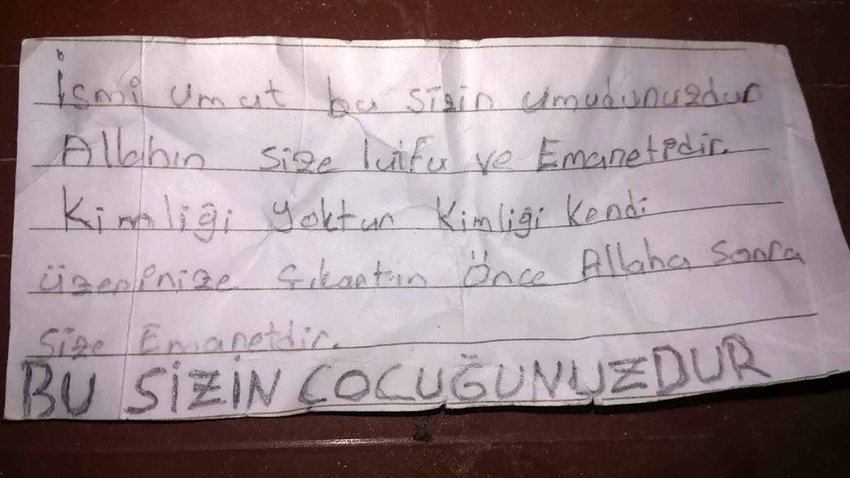 İsmi umut bu sizin umudunuzdur
Allahın size lütfu ve Emanetidir.
Kimliği yoktur kimliği kendi
üzerinize çıkartın Önce Allaha Sonra
Size Emanetdir.
BU SİZİN ÇOCUĞUNUZDUR